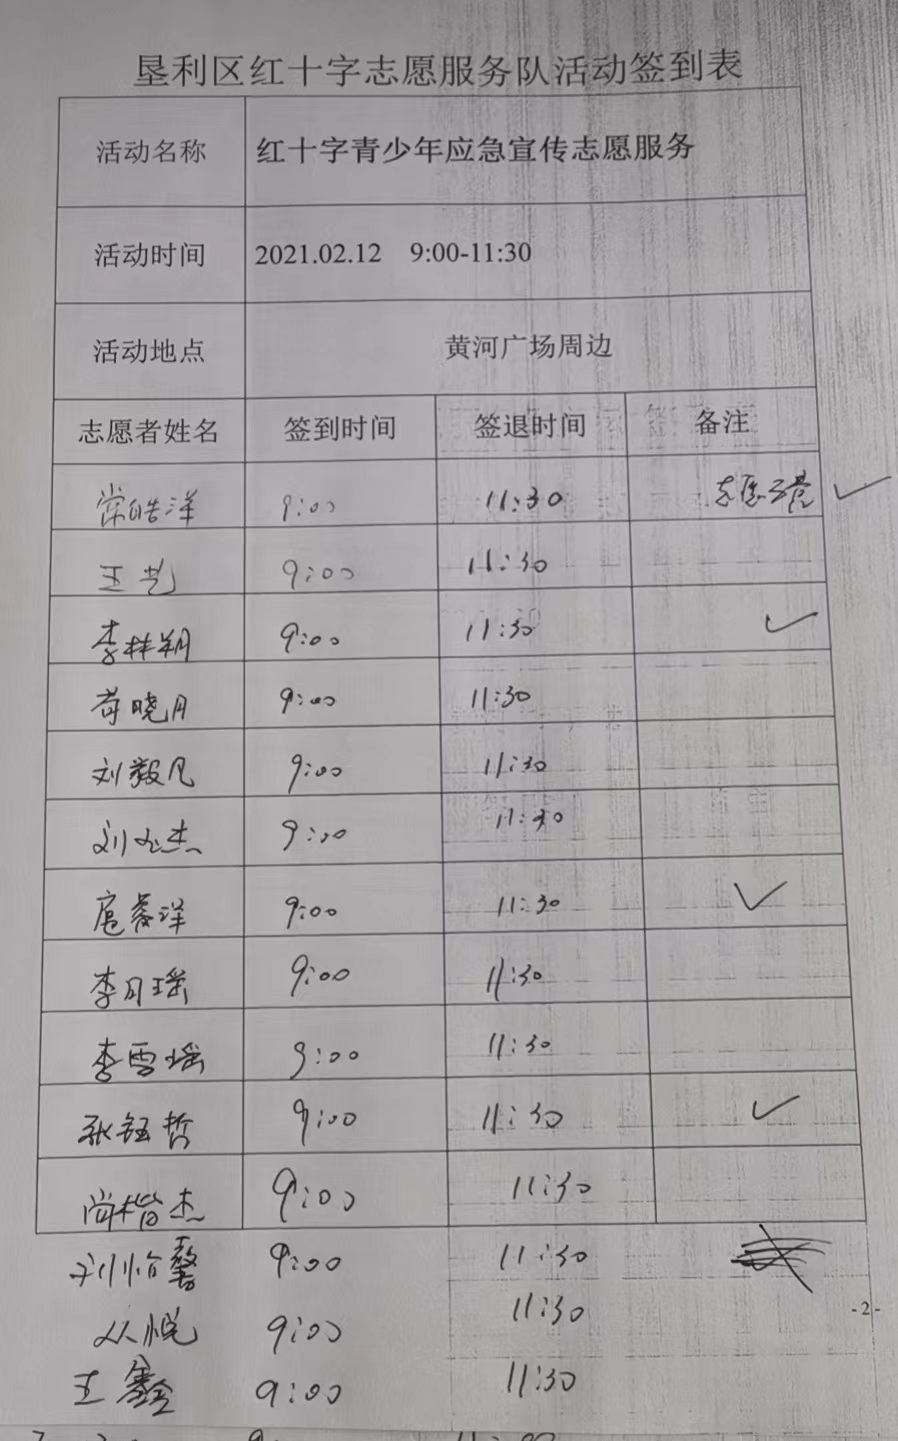 垦利区红十字志愿服务队活动签到表
活动名称 红十字青少年应急宣传志愿服务
活动时间 2021.02.12 9:00-11:30
活动地点 黄河广场周边
志愿者姓名 签到时间 签退时间 备注
常皓洋 9:00 11:30 志愿
王艺 9:00 11:30
李林朔 9:00 11:30
苟晓月 9:00 11:30
刘毅凡 9:00 11:30
刘文杰 9:00 11:30
扈洋 9:00 11:30
李月瑶 9:00 11:30
李雪瑶 9:00 11:30
张钰哲 9:00 11:30
尚楷杰 9:00 11:30
刘怡馨 9:00 11:30
从悦 9:00 11:30
-2-
王鑫 9:00 11:30